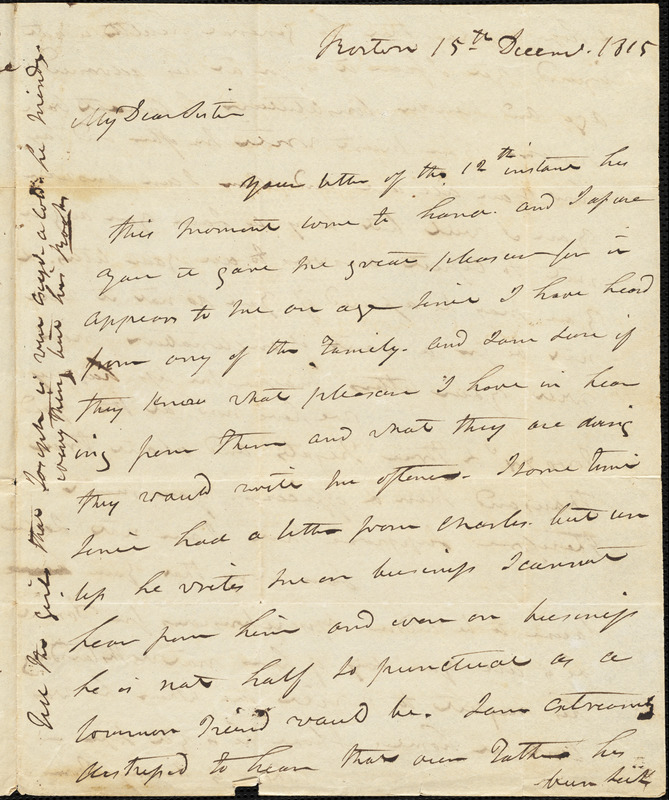 Boston 15th Decemr. 1815
My Dear Sister
Your letter of the 12th instant has
this moment come to hand. and I assure
you it gave me great pleasure for it
appears to me an age since I have heard
from any of the Family. and I am sure if
they knew what pleasure I have in hear
ing from them and what they are doing
they would write me oftener. I some time
since had a letter from Charles. but un
less he writes me on buisiness I cannot
hear from him and even on buisiness
he is not half so punctual as a
common Friend would be. I am extreamly
distressed to hear that our Father has
been sick
Tell the girls that Joseph is over his cold & he minds
every thing but his book